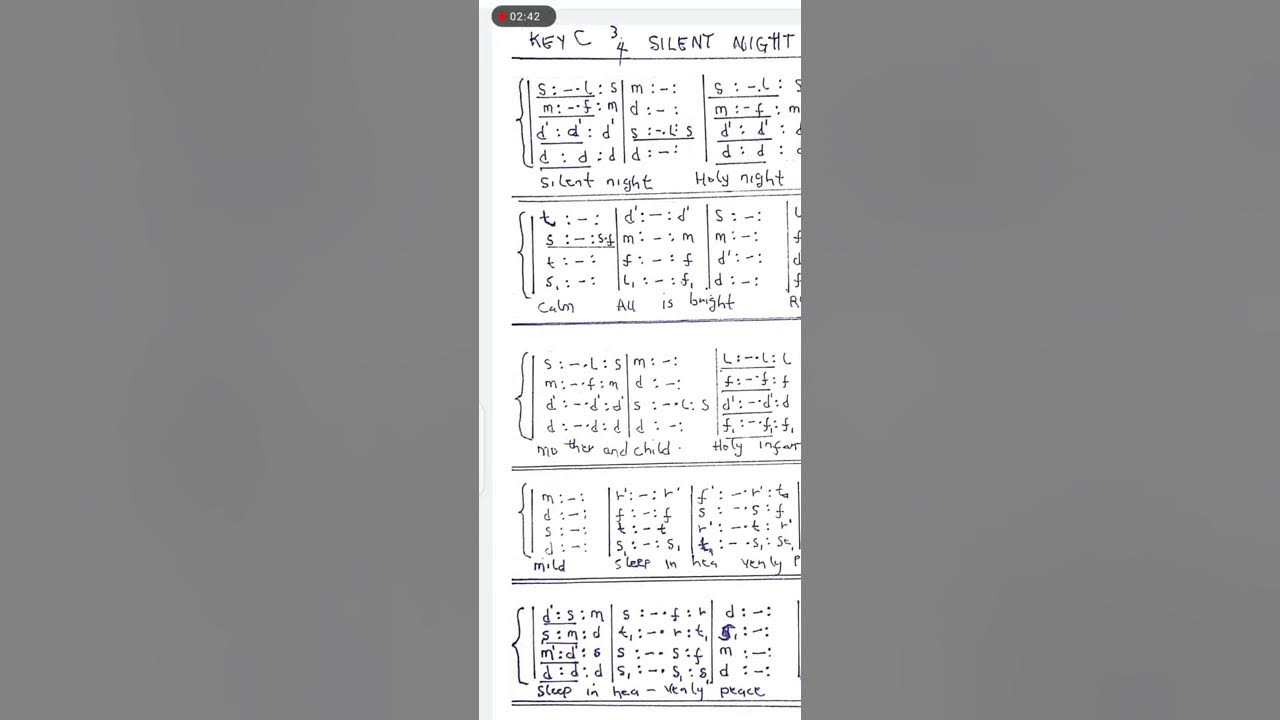 02:42
KEY C 3/4 SILENT NIGHT
s : -.l : s | m : - : | s : -.l : s
m : -.f : m | d : - : | m : - f : m
d' : d' : d' | s : -.l : s | d' : d' :
d : d : d | d : - : | d : d :
Silent night Holy night
t : - : | d' : - : d' | s : - : | l
s : - : s.f | m : - : m | m : - : | f
t : - : | f : - : f | d' : - : | d
s₁ : - : | l₁ : - : f₁ | d : - : | f
Calm All is bright
s : -.l : s | m : - : | l : -.l : l
m : -.f : m | d : - : | f : -.f : f
d' : -.d' : d' | s : -.l : s | d' : -.d' : d
d : -.d : d | d : - : | f₁ : -.f₁ : f₁
mo ther and child. Holy infan
m : - : | r' : - : r' | f' : -.r' : t
d : - : | f : - : f | s : -.s : f
s : - : | t : - t | r' : -.t : r'
d : - : | s₁ : - : s₁ | t₁ : -.s₁ : s
mild sleep in hea venly P
d' : s : m | s : -.f : r | d : - :
s : m : d | t₁ : -.r : t₁ | s₁ : - :
m' : d' : s | s : -.s : f | m : - :
d : d : d | s₁ : -.s₁ : s | d : - :
Sleep in hea - venly peace